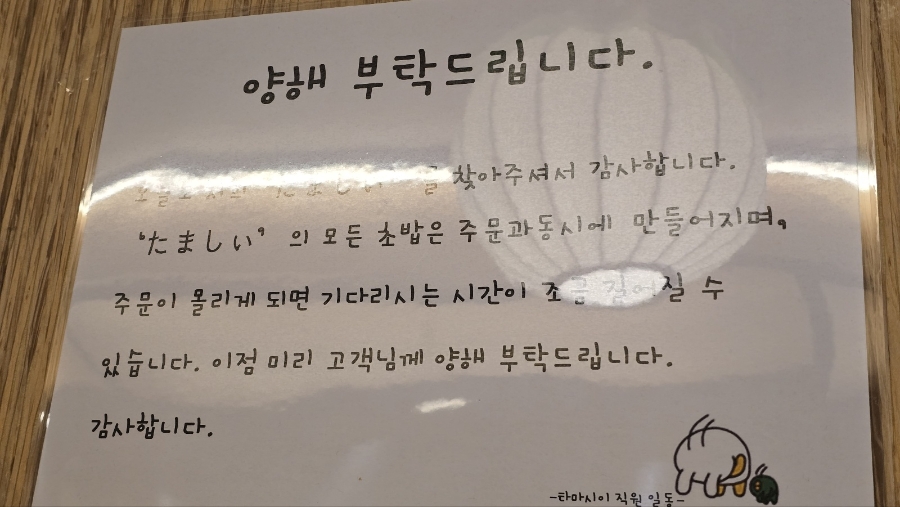 양해 부탁드립니다.
たましい 를 찾아주셔서 감사합니다.
"たましい" 의 모든 초밥은 주문과동시에 만들어지며,
주문이 몰리게 되면 기다리시는 시간이 조금 길어질 수
있습니다. 이점 미리 고객님께 양해 부탁드립니다.
감사합니다.
-타마시이 직원 일동-